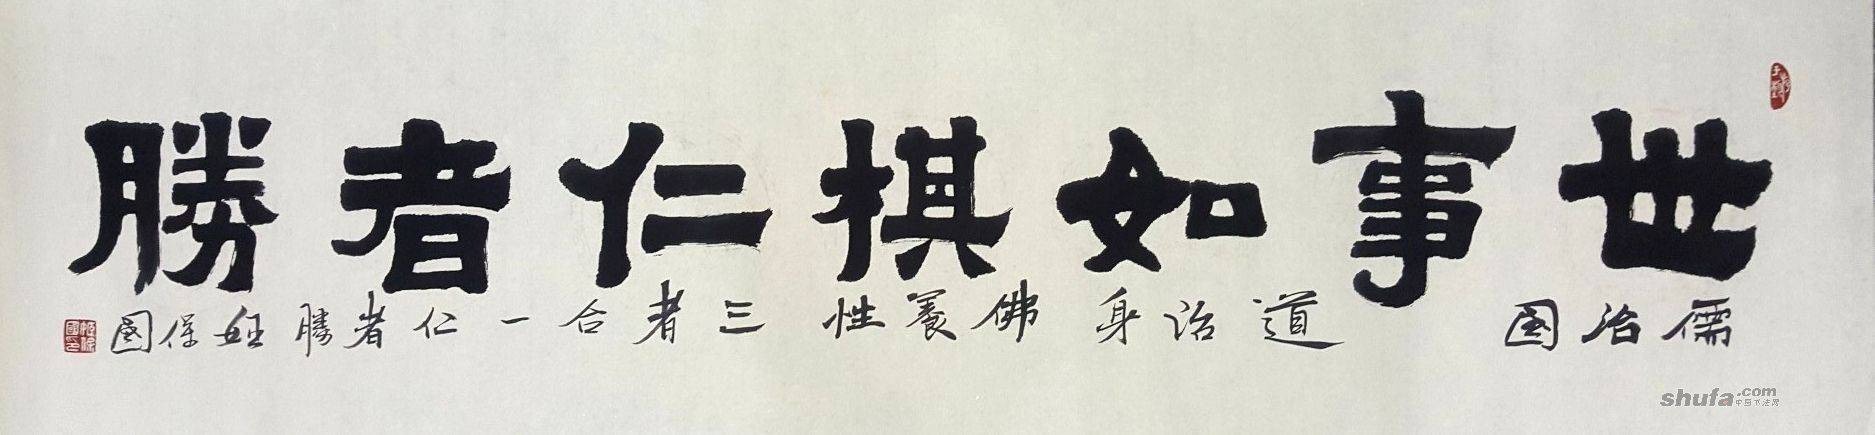 世事如棋仁者勝
儒治国 道治身 佛養性 三者合一 仁者勝 姬保国
姬保國印
shufa.com
中国书法网